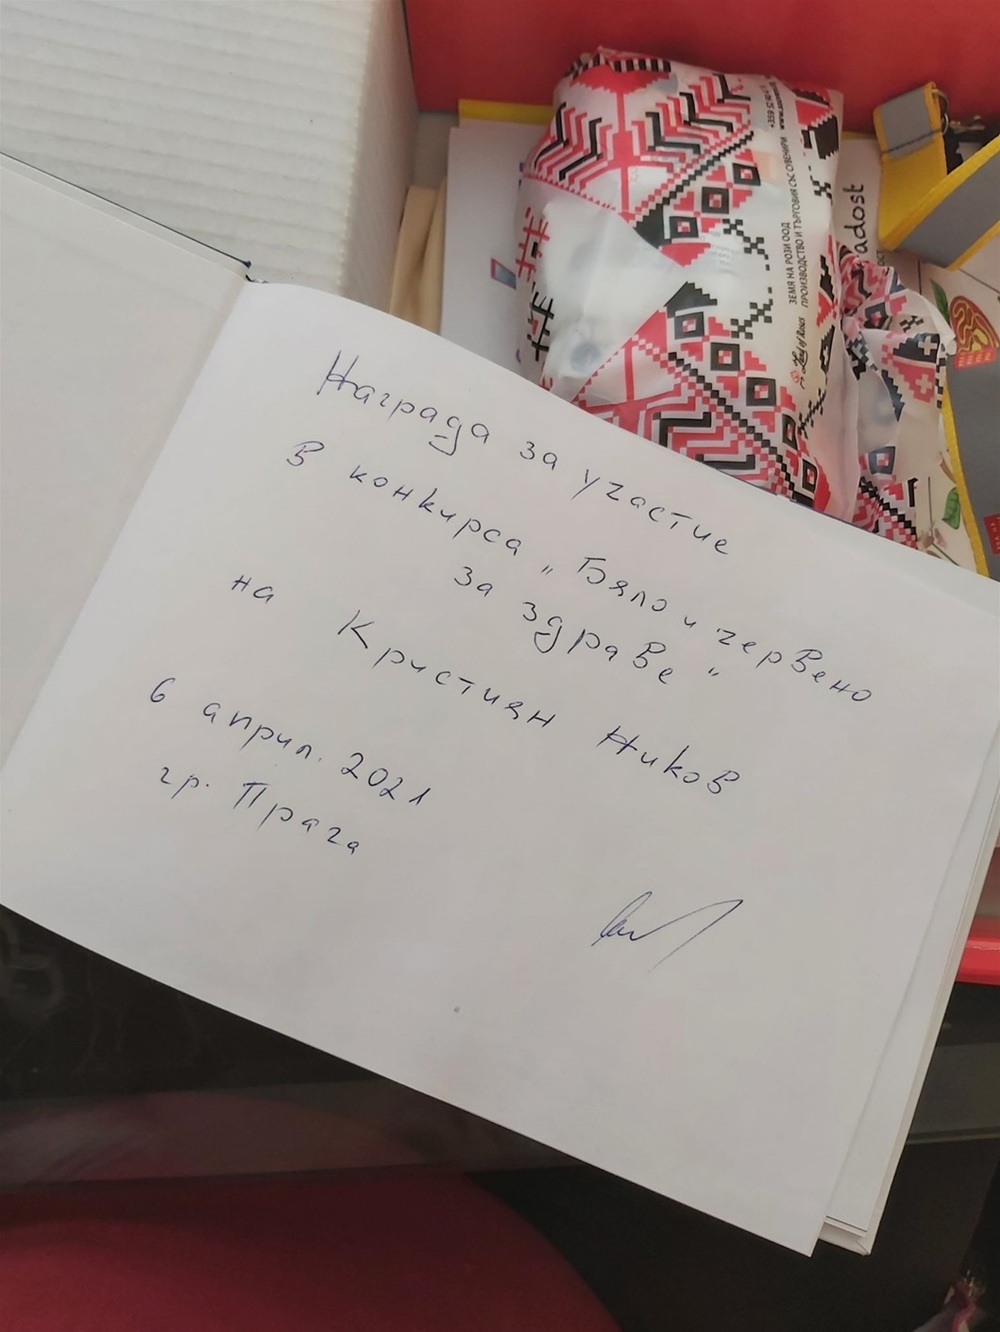 Награда за участие
в конкурса „Бяло и червено
за здраве"
на Кристиян Ников
6 април. 2021
гр. Прага
ЗЕМЯ НА РОЗИ ООД
ПРОИЗВОДСТВО И ТЪРГОВИЯ СЪС СУВЕНИРИ
Land of Roses
adost